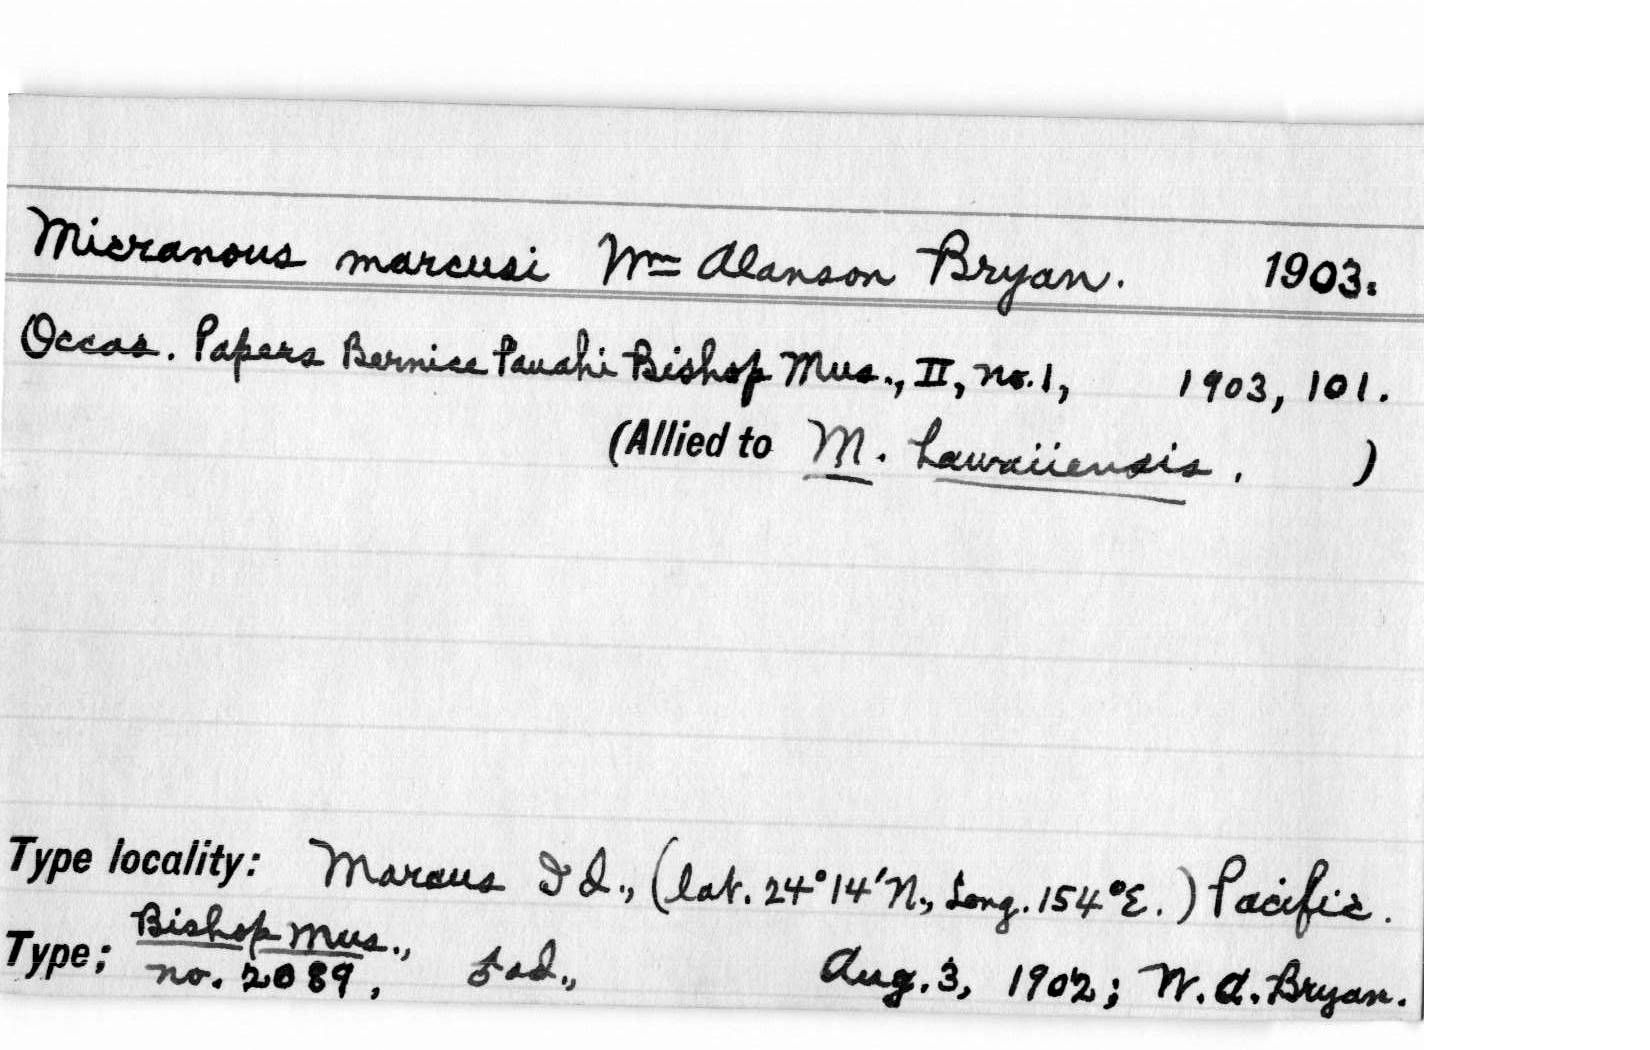 Micranous marcusi Wm Alanson Bryan. 1903.
Occas. Papers Bernice Pauahi Bishop Mus., II, no. 1, 1903, 101.
(Allied to M. hawaiiensis. )
Type locality: Marcus Id., (lat. 24°14'N., Long. 154°E.) Pacific.
Bishop Mus.,
Type; no. 2089, ad., Aug. 3, 1902; W. A. Bryan.